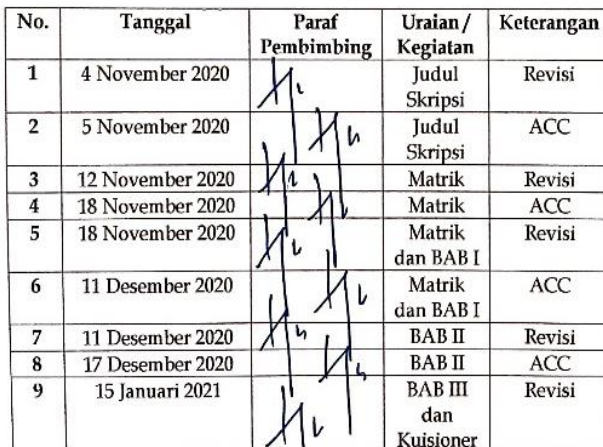 No. Tanggal Paraf Pembimbing Uraian / Kegiatan Keterangan
1 4 November 2020 Judul Skripsi Revisi
2 5 November 2020 Judul Skripsi ACC
3 12 November 2020 Matrik Revisi
4 18 November 2020 Matrik ACC
5 18 November 2020 Matrik dan BAB I Revisi
6 11 Desember 2020 Matrik dan BAB I ACC
7 11 Desember 2020 BAB II Revisi
8 17 Desember 2020 BAB II ACC
9 15 Januari 2021 BAB III dan Kuisioner Revisi